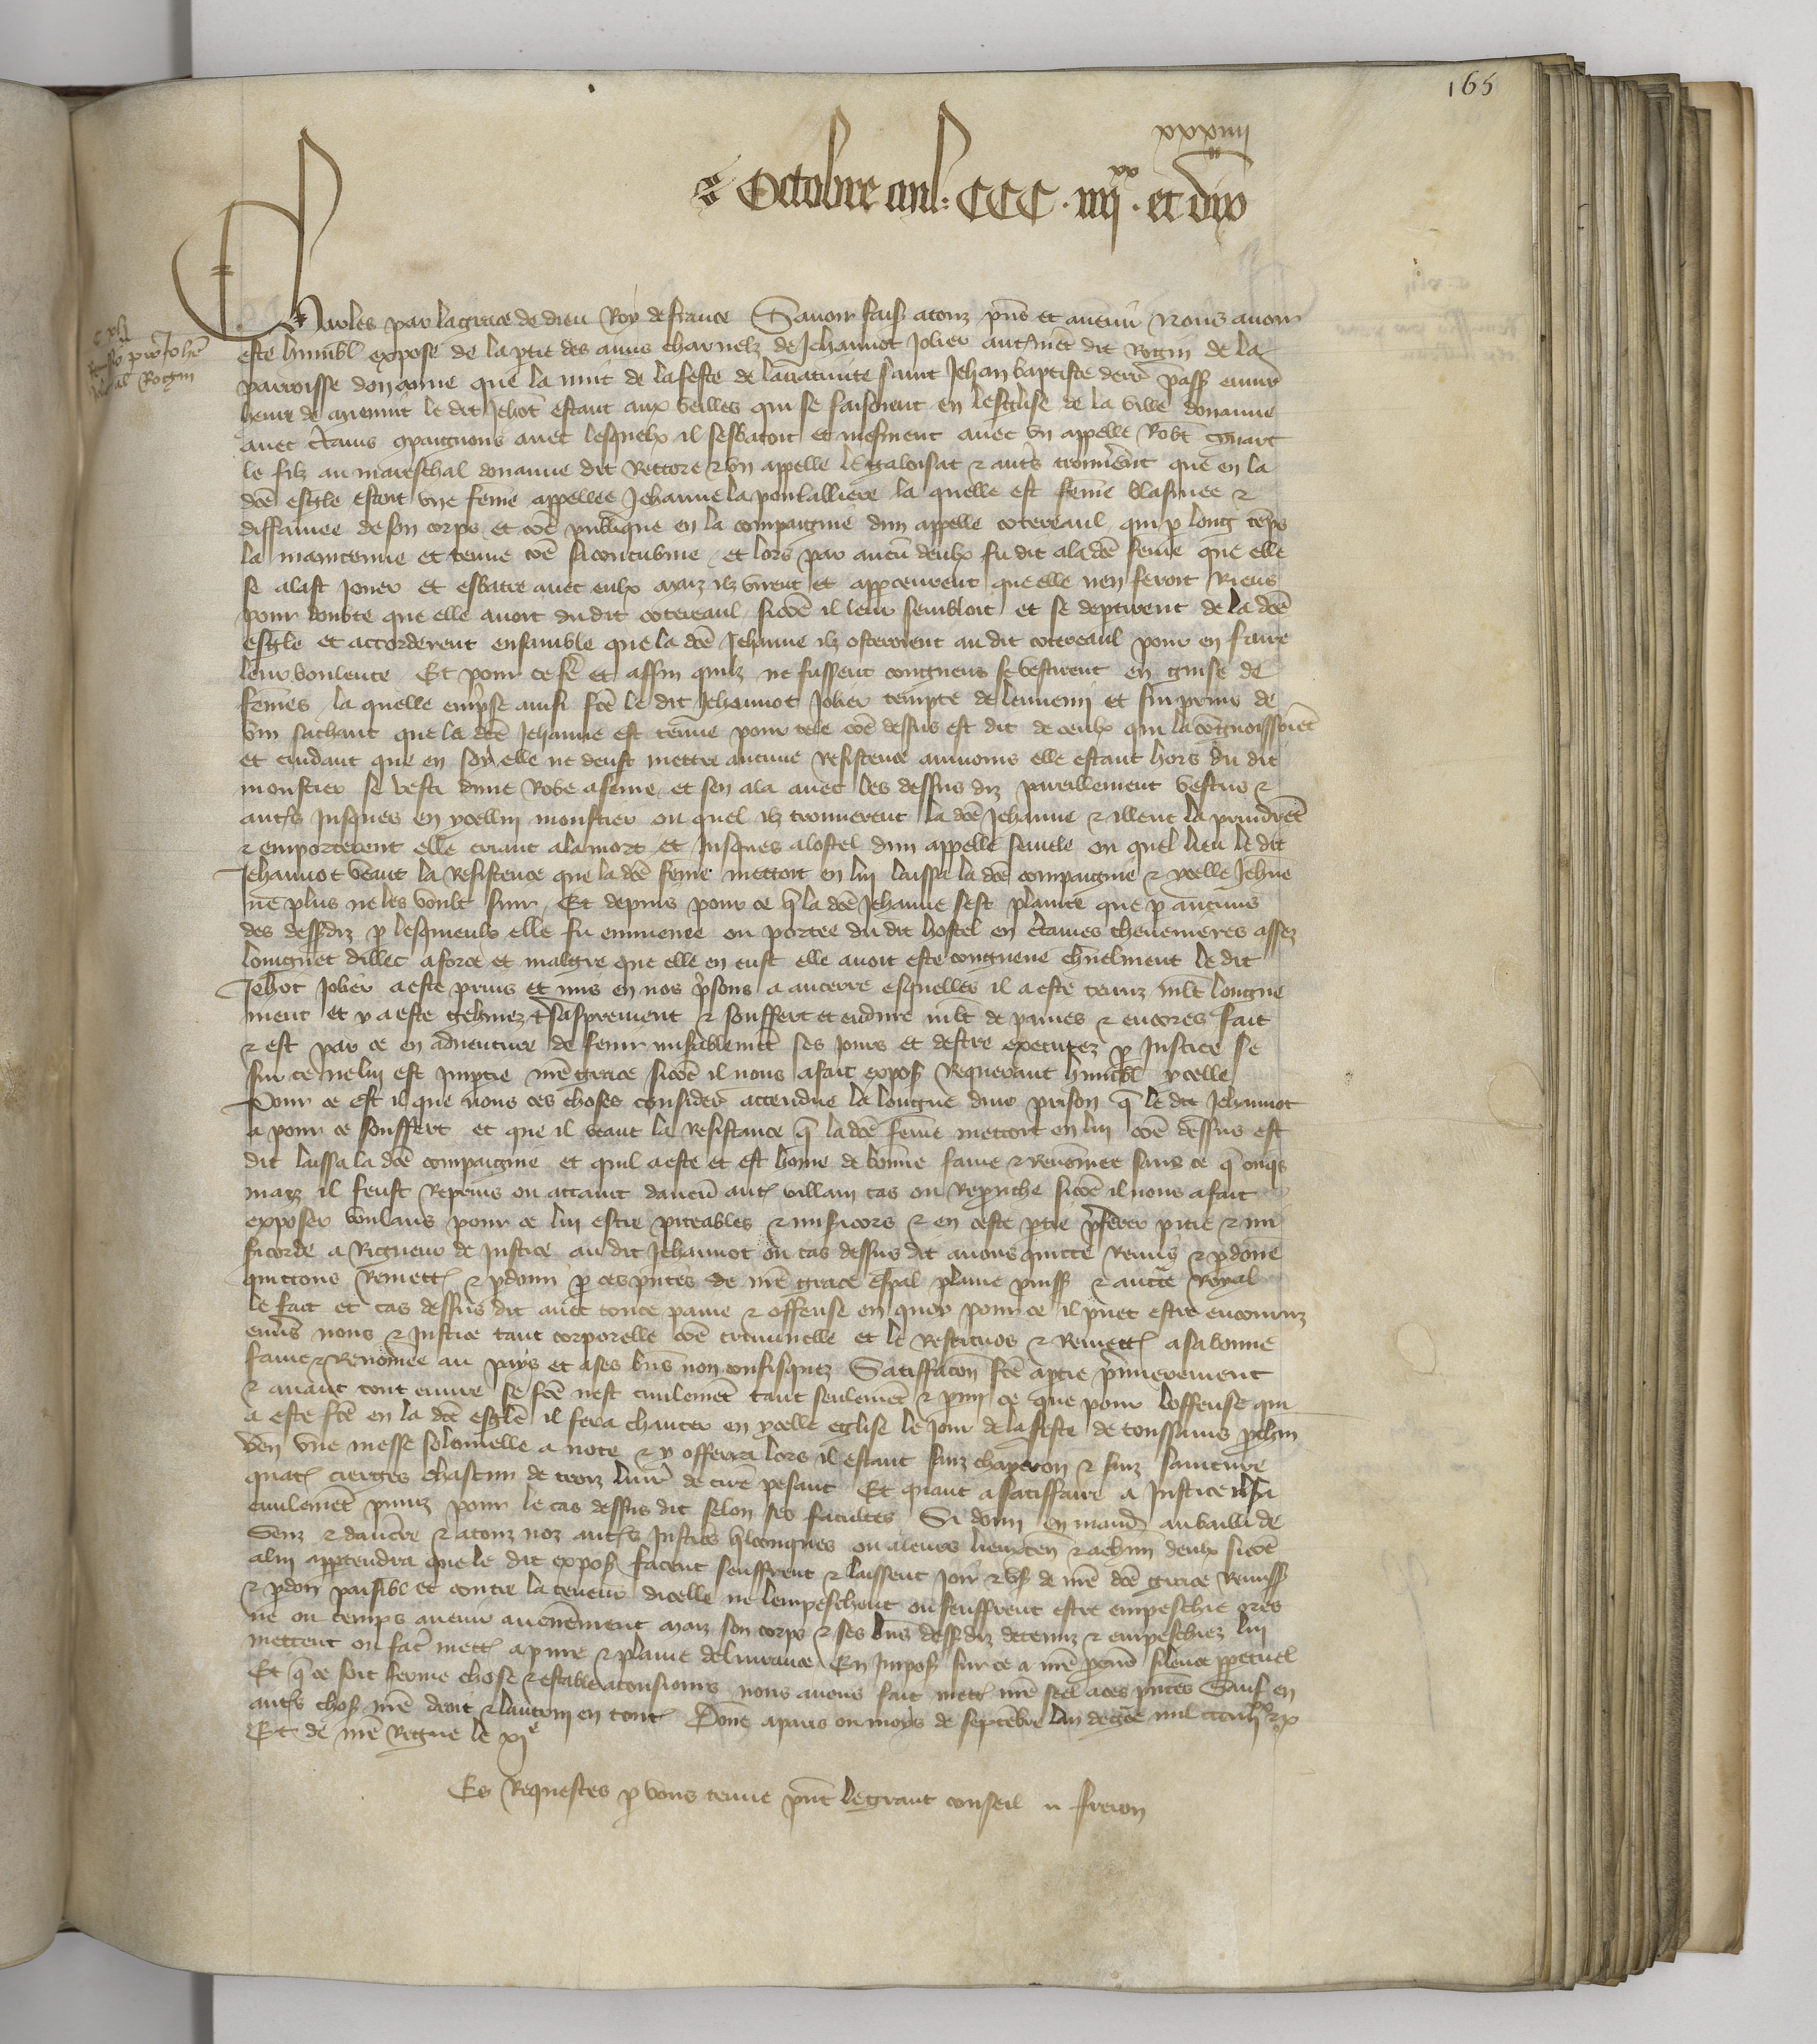 165
xxxiiii
Octobre anl: CCC. iiijxx. et dix
cxlj
Remissio pro Johen
Rogin
Charles par la grace de dieu Roy de france Savoir faisons a touz pñs et avenir Nous avoir
este humbl expose de la ptie des amis charnelz de Jehannot Jolier autmēt dit Rogin de la
parroisse donanne que la nuit de la feste de la nativite saint Jehan baptiste derr̄ pass̄ environ
heure de mienuit le dit Jehāot estant aux veilles qui se faisoient en lesglise de la ville donanne
avec c̄tains cōpaignons avec lesquelx il sesbatoit et mesment avec un appelle Robt̄
le filz au mareschal donanne dit Rettore & un appelle le galoisat & autr̄s trouverent que en la
dc̄e esgle estoit une feme appellee Jehanne la pontalliere la quelle est feme blasmee &
diffamee de son corps et cōe publique en la compaignie dun appelle cotereaul qui p long tēps
la maintenue et tenue cōe sa concubine et lors par aucū deulx fu dit a la dc̄e feme que elle
se alast jouer et esbatre avec eulx maiz ilz virent et apperceurent que elle nen feroit Riens
pour doubte que elle avoit du dit cotereaul sicōe il leur sembloit et se deptirent de la dc̄e
esgle et accorderent ensamble que la dc̄e Jehanne ilz osteroient au dit cotereaul pour en faire
leur voulente Et pour ce fē et affin quilz ne fussent congneuz se vestirent en guise de
fēmes la quelle emp̄se ainsi fc̄e le dit Jehannot Jolier tempte de lennemi et surprins de
vin sachant que la dc̄e Jehanne est tenue pour tele cōe dessus est dit de ceulx qui la cōgnoissoiēt
et cuidant que en soy elle ne deust mettre aucune resistence aumoins elle estant hors du dit
monstier se vesti dune Robe a feme et sen ala avec les dessus diz pareillement vestus &
autrs jusques en ycellui monstier ou quel ilz trouverent la dc̄e Jehanne & illeuc la prindrēt
& emporterent elle criant a la mort et jusques a lostel dun appelle ou quel lieu le dit
Jehannot veant la Resistence que la dc̄e feme mettoit en lui laissa la dc̄e compaignie & ycelle Jehn̄e
ne plus ne les voult suir Et depuis pour ce q̄ la dc̄e Jehanne sest plainte que p aucuns
des dessdiz p lesquieulx elle fu emmenee ou portee du dit hostel en c̄taines chenevieres assez
loingnet dillec a force et malgre que elle en eust elle avoit este congneue chñelment le dit
Jehāot Jolier a este prins et mis en noz p̄sons a aucerre esquelles il a este tenuz mlt̄ longue
ment et y a este gehinez tr̄saspremt & souffert et endure mlt̄ de paines & encores fait
& est par ce en adventure de fenir mis̄ablemēt ses jours et destre executez p justice se
sur ce ne lui est impartie nr̄e grace sicōe il nous a fait expos̄ Requerant humbl̄ ycelle
Pour ce est il que nous ces choses consider̄ attendue la longue dure prison q̄ le dit Jehannot
a pour ce souffert et que il veant la Resistance q̄ la dc̄e feme mettoit en lui cōe dessus est
dit laissa la dc̄e compaignie et quil a este et est home de bonne fame & Renōmee sans ce q̄ onq̄s
maiz il feust Reprins ou attaint daucū autr̄ villain cas ou Reprouche sicōe il nous a fait
exposer voulans pour ce lui estre piteables & misicors & en ceste p̄tie p̄ferer pitie & mi
sicorde a Rigueur de justice au dit Jehannot ou cas dessus dit avons quitte Remis & p̄done
quittons Remettr̄ & p̄donn̄ p ces pn̄tes de nr̄e grace espal plaine puiss̄ & aucte Royal
le fait et cas dessus dit avec toute paine & offense en quoy pour ce il puet estre encouruz
envrs nous & justice tant corporelle cōe criminelle et le Restituons & Remettr̄ a sa bonne
fame & Renōmee au pays et a ses bñs non confisquez Satiffacion fc̄e a ptie p̄mierement
& avant tout euvre se fc̄e nest civilemēt tant seulemēt & pmi ce que pour loffense qui
a este fc̄e en la dc̄e esgle il fera chanter en ycelle eglise le jour de la feste de toussains p̄chin
ven̄ une messe solennelle a note & y offerra lors il estant sanz chaperon & sanz sainture
quatr̄ cierges chascun de troiz livr̄ de cire pesant Et quant a satiffaire a justice il sera
civilemēt puniz pour le cas dessus dit selon ses facultes Si donn en mand̄ au bailli de
Senz & daucr̄re & a touz noz autrs justiciers q̄lconques ou a leurs lieuxten̄ & a chūn deulx sicōe
a lui appartendra que le dit expos̄ facent seuffrent & laissent joir & us̄ de nr̄e dc̄e grace Remiss̄
& p̄don paisibl̄ et contre la teneur dicelle ne lempeschent ou seuffrent estre empeschie ores
ne ou temps avenir aucunēment maiz son corps & ses bñs dessdiz detenuz & empeschiez lui
mettent ou fac̄ mettr̄ a pure & plaine delivrance En impos̄ sur ce a nr̄e procur̄ silence ppetuel
Et q̄ ce soit ferme chose & estable a tousjours nous avons fait mettr̄ nr̄e seel a ces pn̄tes Sauf en
autrs chos̄ nr̄e droit & lautrui en tout̄ Donē a paris ou moys de septēbre lan de grace mil ccciiijxx & x
Et de nr̄e Regne le xje
Es Requestes p vous tenue pñt le grant conseil n freron